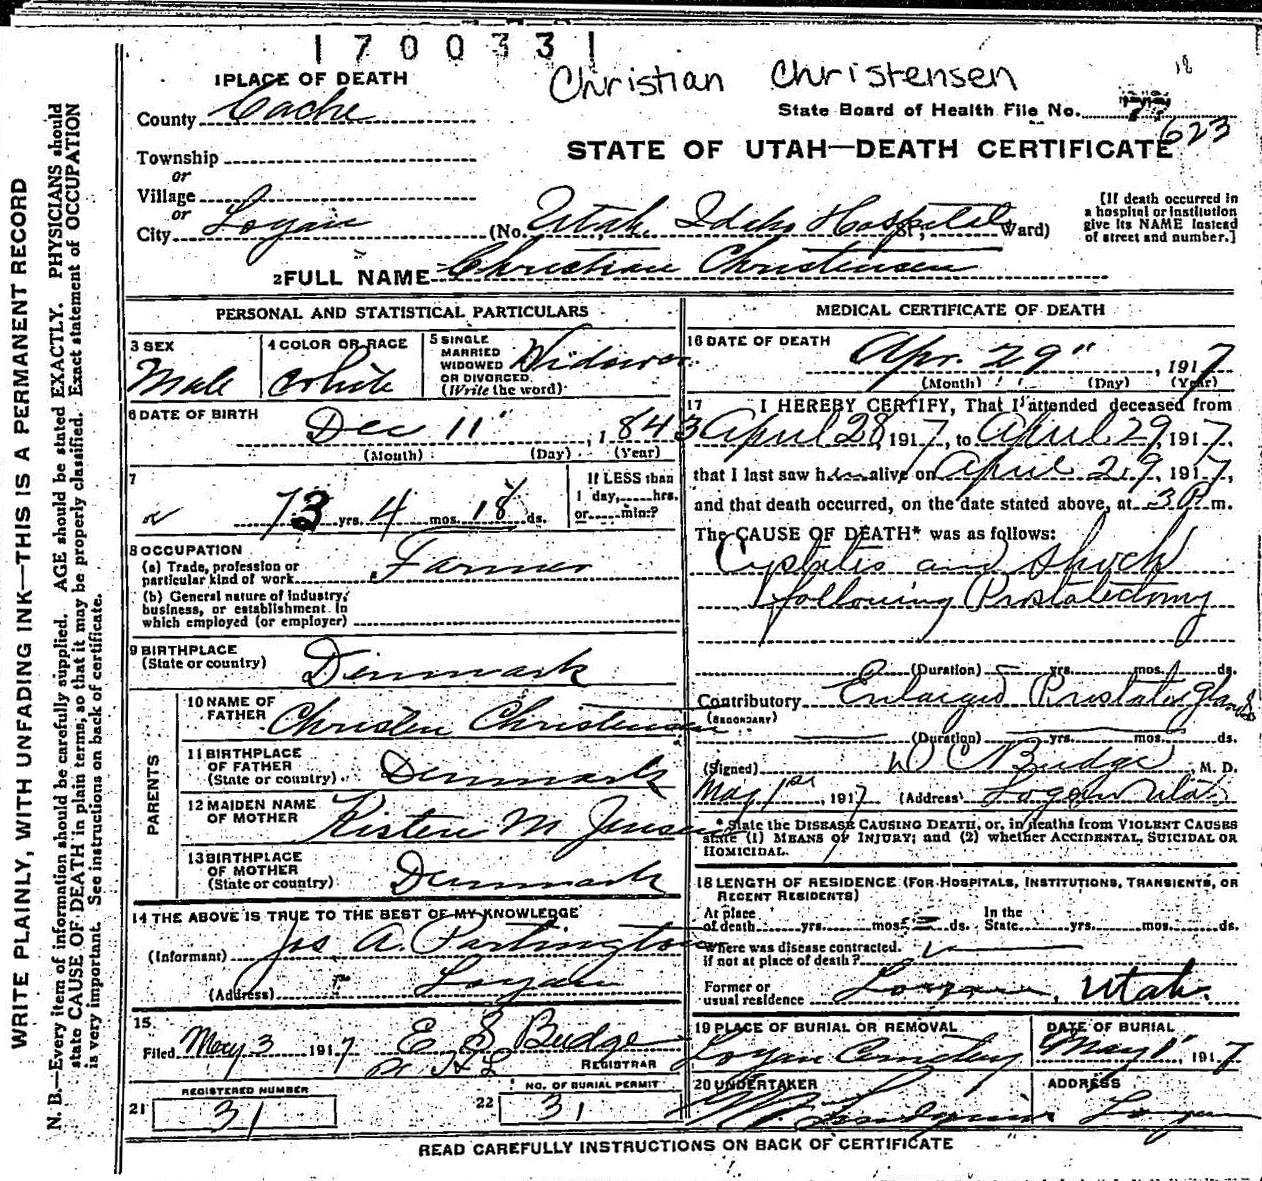 1700331
Christian Christensen
18
1 PLACE OF DEATH
County Cache
State Board of Health File No. 623
Township
STATE OF UTAH—DEATH CERTIFICATE
or
Village
or
City Logan (No. Utah Idaho Hospital St; Ward)
[If death occurred in
a hospital or institution
give its NAME instead
of street and number.]
2 FULL NAME Christian Christensen
PERSONAL AND STATISTICAL PARTICULARS
3 SEX
Male
4 COLOR OR RACE
White
5 SINGLE
MARRIED
WIDOWED
OR DIVORCED
(Write the word)
Widower
6 DATE OF BIRTH
Dec 11", 1843
(Month) (Day) (Year)
7
73 yrs. 4 mos. 18 ds.
If LESS than
1 day, hrs.
or min.?
8 OCCUPATION
(a) Trade, profession or
particular kind of work Farmer
(b) General nature of industry,
business, or establishment in
which employed (or employer)
9 BIRTHPLACE
(State or country) Denmark
PARENTS
10 NAME OF
FATHER Christen Christensen
11 BIRTHPLACE
OF FATHER
(State or country) Denmark
12 MAIDEN NAME
OF MOTHER Kisten M Jensen
13 BIRTHPLACE
OF MOTHER
(State or country) Denmark
14 THE ABOVE IS TRUE TO THE BEST OF MY KNOWLEDGE
(Informant) Jos A. Partington
(Address) Logan
15
Filed May 3 1917 E S Budge
REGISTRAR
REGISTERED NUMBER
21 31
NO. OF BURIAL PERMIT
22 31
MEDICAL CERTIFICATE OF DEATH
16 DATE OF DEATH
Apr. 29", 1917
(Month) (Day) (Year)
17 I HEREBY CERTIFY, That I attended deceased from
April 28, 1917, to April 29, 1917,
that I last saw him alive on April 29, 1917,
and that death occurred, on the date stated above, at 3 P. m.
The CAUSE OF DEATH* was as follows:
Cystitis and shock
following Prostatectomy
(Duration) yrs. mos. 1 ds.
Contributory Enlarged Prostate gland
(SECONDARY)
(Duration) yrs. mos. ds.
(Signed) W C Budge M. D.
May 1st, 1917 (Address) Logan Utah
* State the DISEASE CAUSING DEATH, or, in deaths from VIOLENT CAUSES
state (1) MEANS OF INJURY; and (2) whether ACCIDENTAL, SUICIDAL OR
HOMICIDAL.
18 LENGTH OF RESIDENCE (FOR HOSPITALS, INSTITUTIONS, TRANSIENTS, OR
RECENT RESIDENTS)
At place
of death yrs. mos. 2 ds. In the
State yrs. mos. ds.
Where was disease contracted.
if not at place of death?
Former or
usual residence Logan, Utah.
19 PLACE OF BURIAL OR REMOVAL
Logan Cemetery
DATE OF BURIAL
May 1", 1917
20 UNDERTAKER
ADDRESS
Logan
READ CAREFULLY INSTRUCTIONS ON BACK OF CERTIFICATE
WRITE PLAINLY, WITH UNFADING INK—THIS IS A PERMANENT RECORD
N. B.—Every item of information should be carefully supplied. AGE should be stated EXACTLY. PHYSICIANS should
state CAUSE OF DEATH in plain terms, so that it may be properly classified. Exact statement of OCCUPATION
is very important. See instructions on back of certificate.